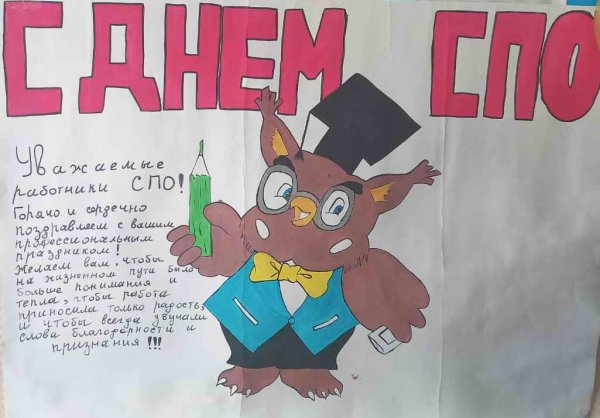 С ДНЕМ СПО
Уважаемые
работники СПО!
Горачо и сердечно
поздравляем с вашим
профессиональным
праздником!
Желаем вам, чтобы
на жизненном пути было
больше понимания и
тепла, чтобы работа
приносила только радость,
и чтобы всегда звучали
слова благодарности и
признания!!!